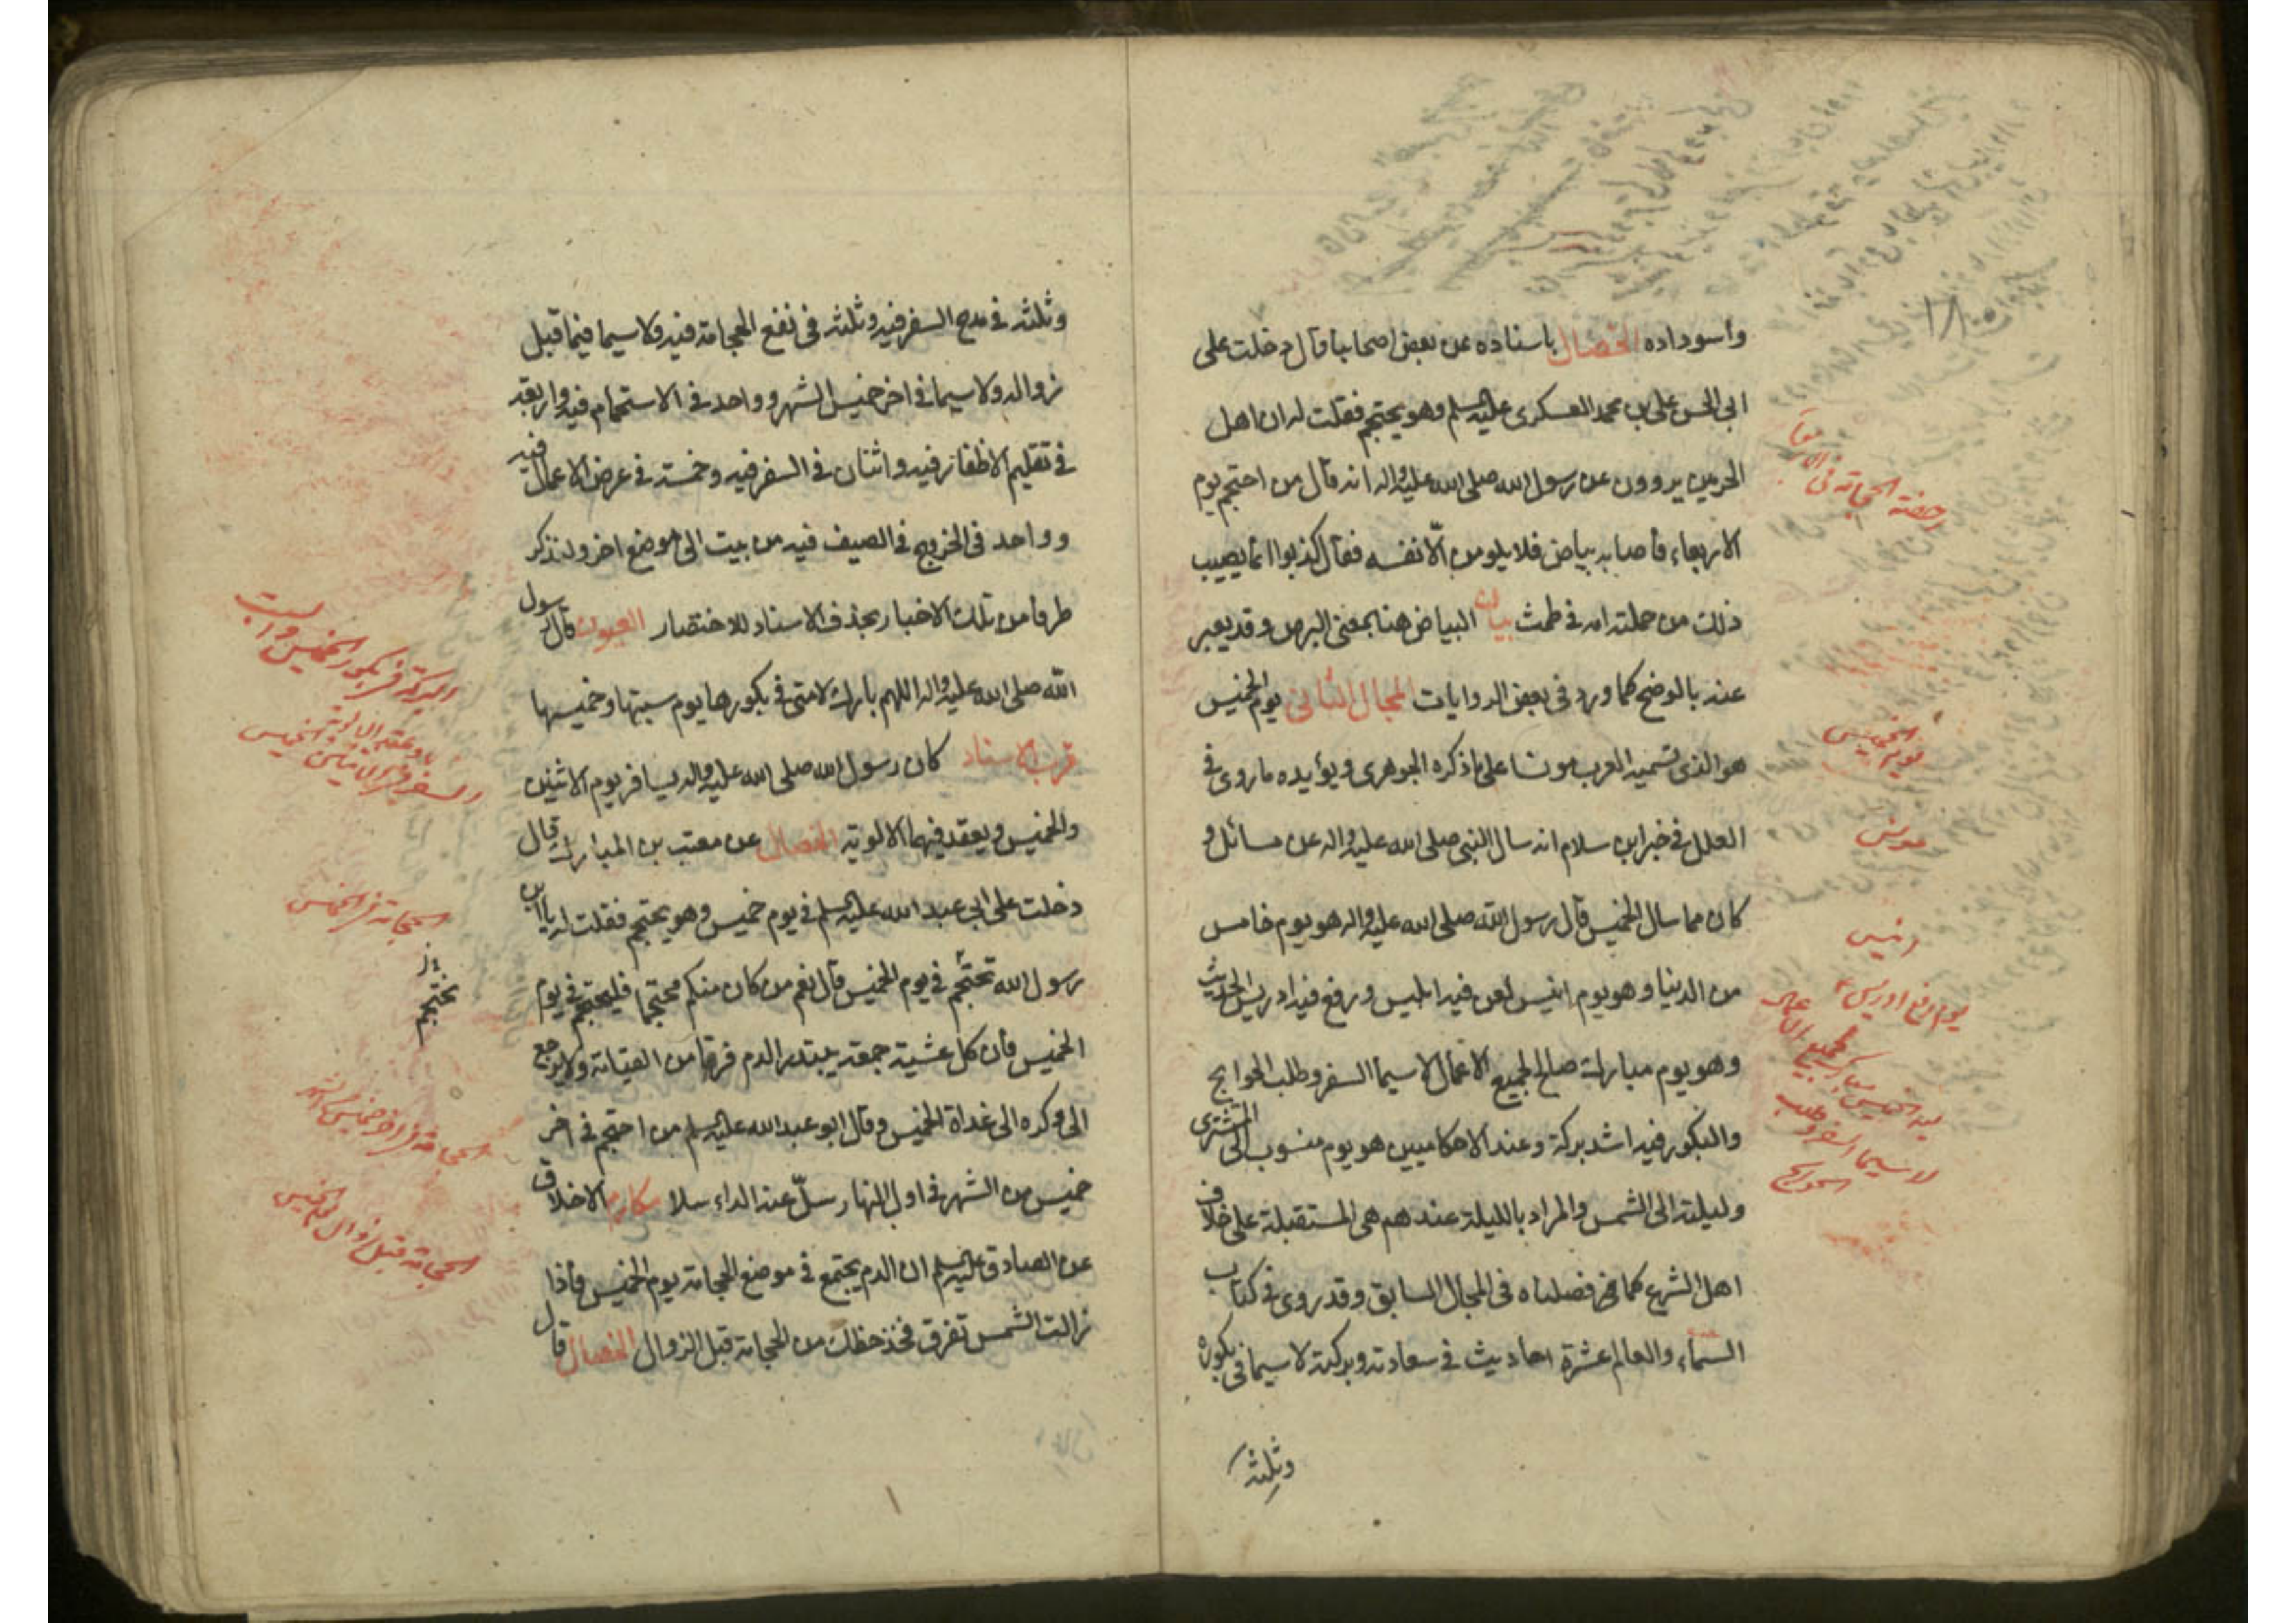 واسوداده الخصال باسناده عن بعض اصحابنا قال دخلت على
ابى الحسن على بن محمد العسكرى عليه السلم وهو يحتجم فقلت له ان اهل
الحرمين يروون عن رسول الله صلى الله عليه واله انه قال من احتجم يوم
الاربعاء فاصابه بياض فلا يلومن الّا نفسه فقال كذبوا انما يصيب
ذلك من حملته امه فى طمث بيان البياض هنا بمعنى البرص وقد يعبر
عنه بالوضح كما ورد فى بعض الروايات المجال الثانى يوم الخميس
هو الذى تسميه العرب مونسا على ما ذكره الجوهرى ويؤيده ما روى فى
العلل فى خبر ابن سلام انه سال النبى صلى الله عليه واله عن مسائل و
كان مما سال الخميس قال رسول الله صلى الله عليه واله هو يوم خامس
من الدنيا وهو يوم انيس لعن فيه ابليس ورفع فيه ادريس الحديث
وهو يوم مبارك صالح لجميع الاعمال لاسيما السفر وطلب الحوايج
والبكور فيه اشد بركة وعند الاحكاميين هو يوم منسوب الى المشترى
وليلته الى الشمس والمراد بالليلة عندهم هى المستقبلة على خلاف
اهل الشرع كما فصلناه فى المجال السابق وقد روى فى كتاب
السماء والعالم عشرة احاديث فى سعادته وبركته لاسيما فى بكوره
وثلثه
الحجامة فى
مونس
انيس
يوم رفع ادريس
لاسيما السفر وطلب
الحوايج
وثلثه فى مدح السفر فيه وثلثه فى نفع الحجامة فيه ولاسيما فيما قبل
زواله ولاسيما فى اخر خميس الشهر وواحد فى الاستحمام فيه واربعة
فى تقليم الاظفار فيه واثنان فى السفر فيه وخمسة فى عرض الاعمال فيه
وواحد فى الخروج فى الصيف فيه من بيت الى موضع اخر ولنذكر
طرفا من تلك الاخبار بحذف الاسناد للاختصار العيون قال رسول
الله صلى الله عليه واله اللهم بارك لامتى فى بكورها يوم سبتها وخميسها
قرب الاسناد كان رسول الله صلى الله عليه واله يسافر يوم الاثنين
والخميس ويعقد فيهما الالوية الخصال عن معتب بن المبارك قال
دخلت على ابى عبد الله عليه السلم فى يوم خميس وهو يحتجم فقلت له يا ابن
رسول الله تحتجم فى يوم الخميس قال نعم من كان منكم محتجما فليحتجم فى يوم
الخميس فان كل عشية جمعة يبتدر الدم فرقا من القيامة ولا يرجع
الى وكره الى غداة الخميس وقال ابو عبد الله عليه السلم من احتجم فى اخر
خميس من الشهر فى اول النهار سلّ عنه الداء سلا مكارم الاخلاق
عن الصادق عليه السلم ان الدم يجتمع فى موضع الحجامة يوم الخميس فاذا
زالت الشمس تفرق فخذ حظك من الحجامة قبل الزوال الخصال قال
البركة فى بكور الخميس والسبت
الحجامة فى الخميس
الحجامة فى اخر خميس الشهر
الحجامة قبل زوال يوم الخميس